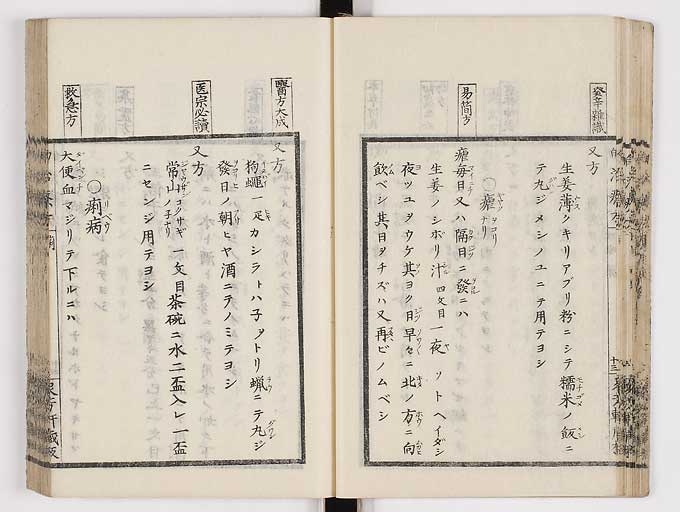 癸辛雜識
又方
生姜薄クキリアブリ粉ニシテ糯米ノ飯ニ
テ丸ジメシノユニテ用テヨシ
○瘧
易簡方
瘧毎日又ハ隔日ニ發ニハ
生姜ノシボリ汁四文目一夜ソトヘイダシ
夜ツユヲウケ其ヨク日早々ニ北ノ方ニ向
飲ベシ其日ヲチズハ又再ビノムベシ
醫方大成
又方
狗蠅一疋カシラトハ子ヲトリ蝋ニテ丸ジ
發日ノ朝ヒヤ酒ニテノミテヨシ
医宗必讀
又方
常山ノ子一文目茶碗ニ水二盃入レ一盃
ニセンジ用テヨシ
○痢病
救急方
大便血マジリテ下ルニハ